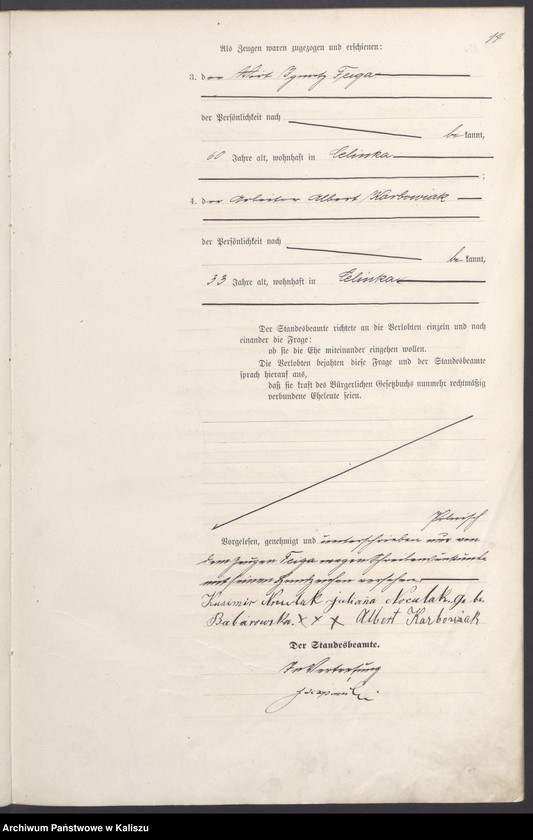 14
Als Zeugen waren zugezogen und erschienen:
3. der Wirt Ignatz Feiga
der Persönlichkeit nach
be kannt,
60 Jahre alt, wohnhaft in Celinka
;
4. der Arbeiter Albert Karbowiak
der Persönlichkeit nach
be kannt,
33 Jahre alt, wohnhaft in Celinka
Der Standesbeamte richtete an die Verlobten einzeln und nach
einander die Frage:
ob sie die Ehe miteinander eingehen wollen.
Die Verlobten bejahten diese Frage und der Standesbeamte
sprach hierauf aus,
daß sie kraft des Bürgerlichen Gesetzbuchs nunmehr rechtmäßig
verbundene Eheleute seien.
Polnisch
Vorgelesen, genehmigt und unterschrieben und von
dem Zeugen Feiga wegen Schreibensunkunde
mit seinem Handzeichen versehen
Kasimir Nowak juliana Noculak. ge. b.
Babarowska. x x x Albert Karbowiak
Der Standesbeamte.
In Vertretung
Archiwum Państwowe w Kaliszu